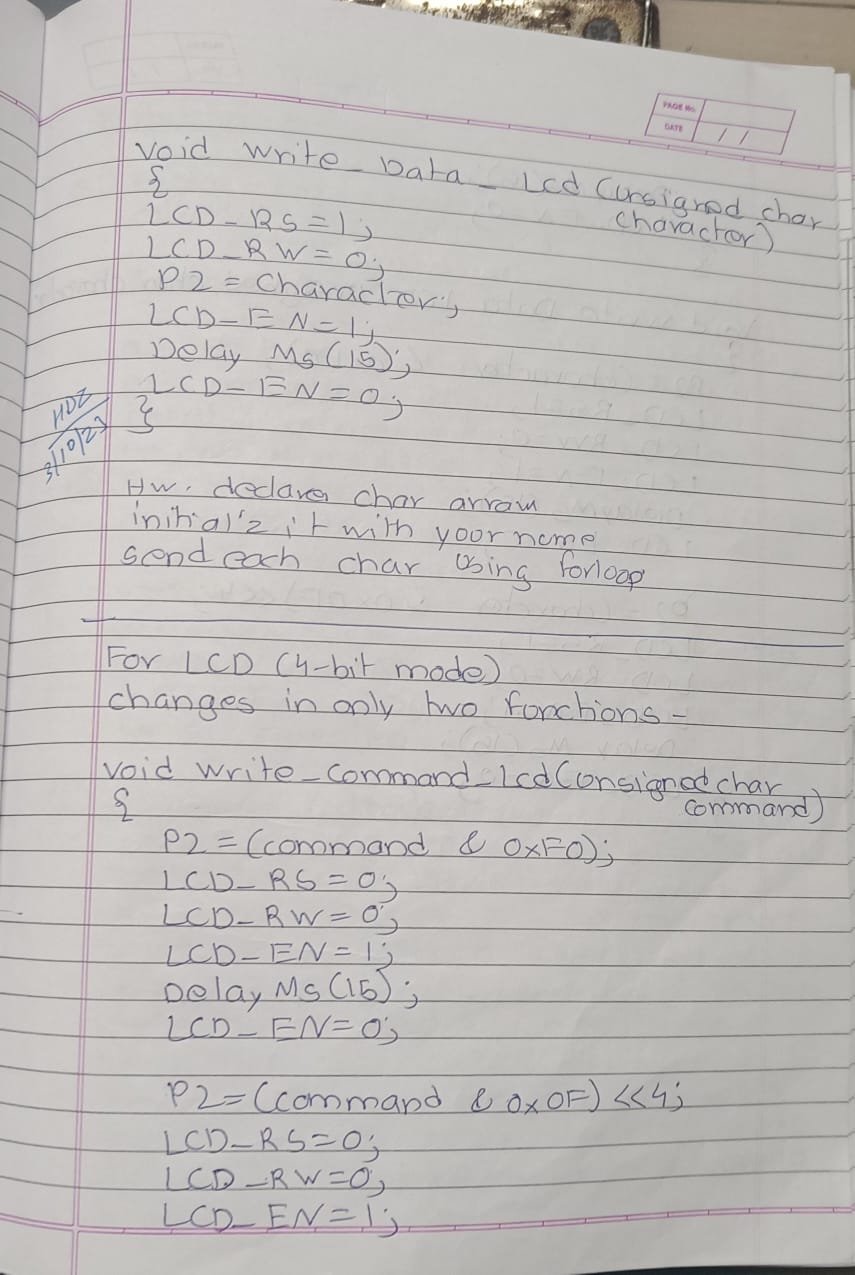 PAGE No.
DATE / /
void write_Data_Lcd (unsigned char
character)
{
LCD_RS=1;
LCD_RW=0;
P2=character;
LCD_EN=1;
Delay Ms(15);
LCD_EN=0;
}
3/10/23
Hw. declare char array
initializ it with your name
send each char using forloop
For LCD (4-bit mode)
changes in only two functions-
void write_command_lcd(unsigned char
command)
{
P2=(command & 0xF0);
LCD_RS=0;
LCD_RW=0;
LCD_EN=1;
Delay Ms(15);
LCD_EN=0;
P2=(command & 0x0F)<<4;
LCD_RS=0;
LCD_RW=0;
LCD_EN=1;